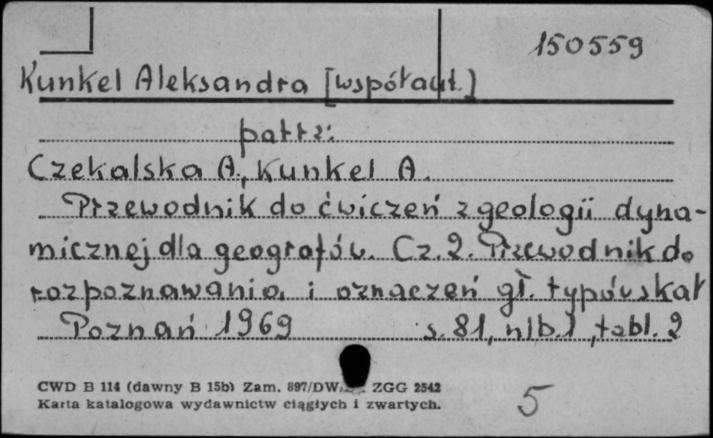 150559
Kunkel Aleksandra [współaut.]
patrz:
Czekalska A., Kunkel A.
Przewodnik do ćwiczeń z geologii dyna-
micznej dla geografów. Cz. 2. Przewodnik do
rozpoznawania i oznaczeń gł. typów skał
Poznań 1969 s. 81, nlb. 1, tabl. 2
CWD B 114 (dawny B 15b) Zam. 897/DW ZGG 2542
Karta katalogowa wydawnictw ciągłych i zwartych.
5